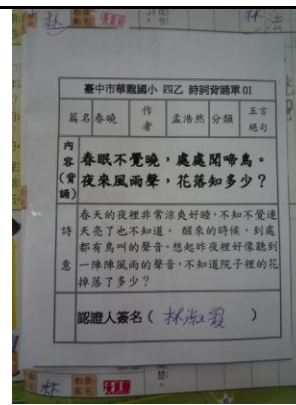 臺中市華龍國小 四乙 詩詞背誦單 01
篇名 春曉 作者 孟浩然 分類 五言絕句
內容(背誦)
春眠不覺曉,處處聞啼鳥。
夜來風雨聲,花落知多少?
詩意
春天的夜裡非常涼爽好睡,不知不覺連
天亮了也不知道。 醒來的時候,到處
都有鳥叫的聲音。想起昨夜裡好像聽到
一陣陣風雨的聲音,不知道院子裡的花
掉落了多少?
認證人簽名( 林淑霞 )